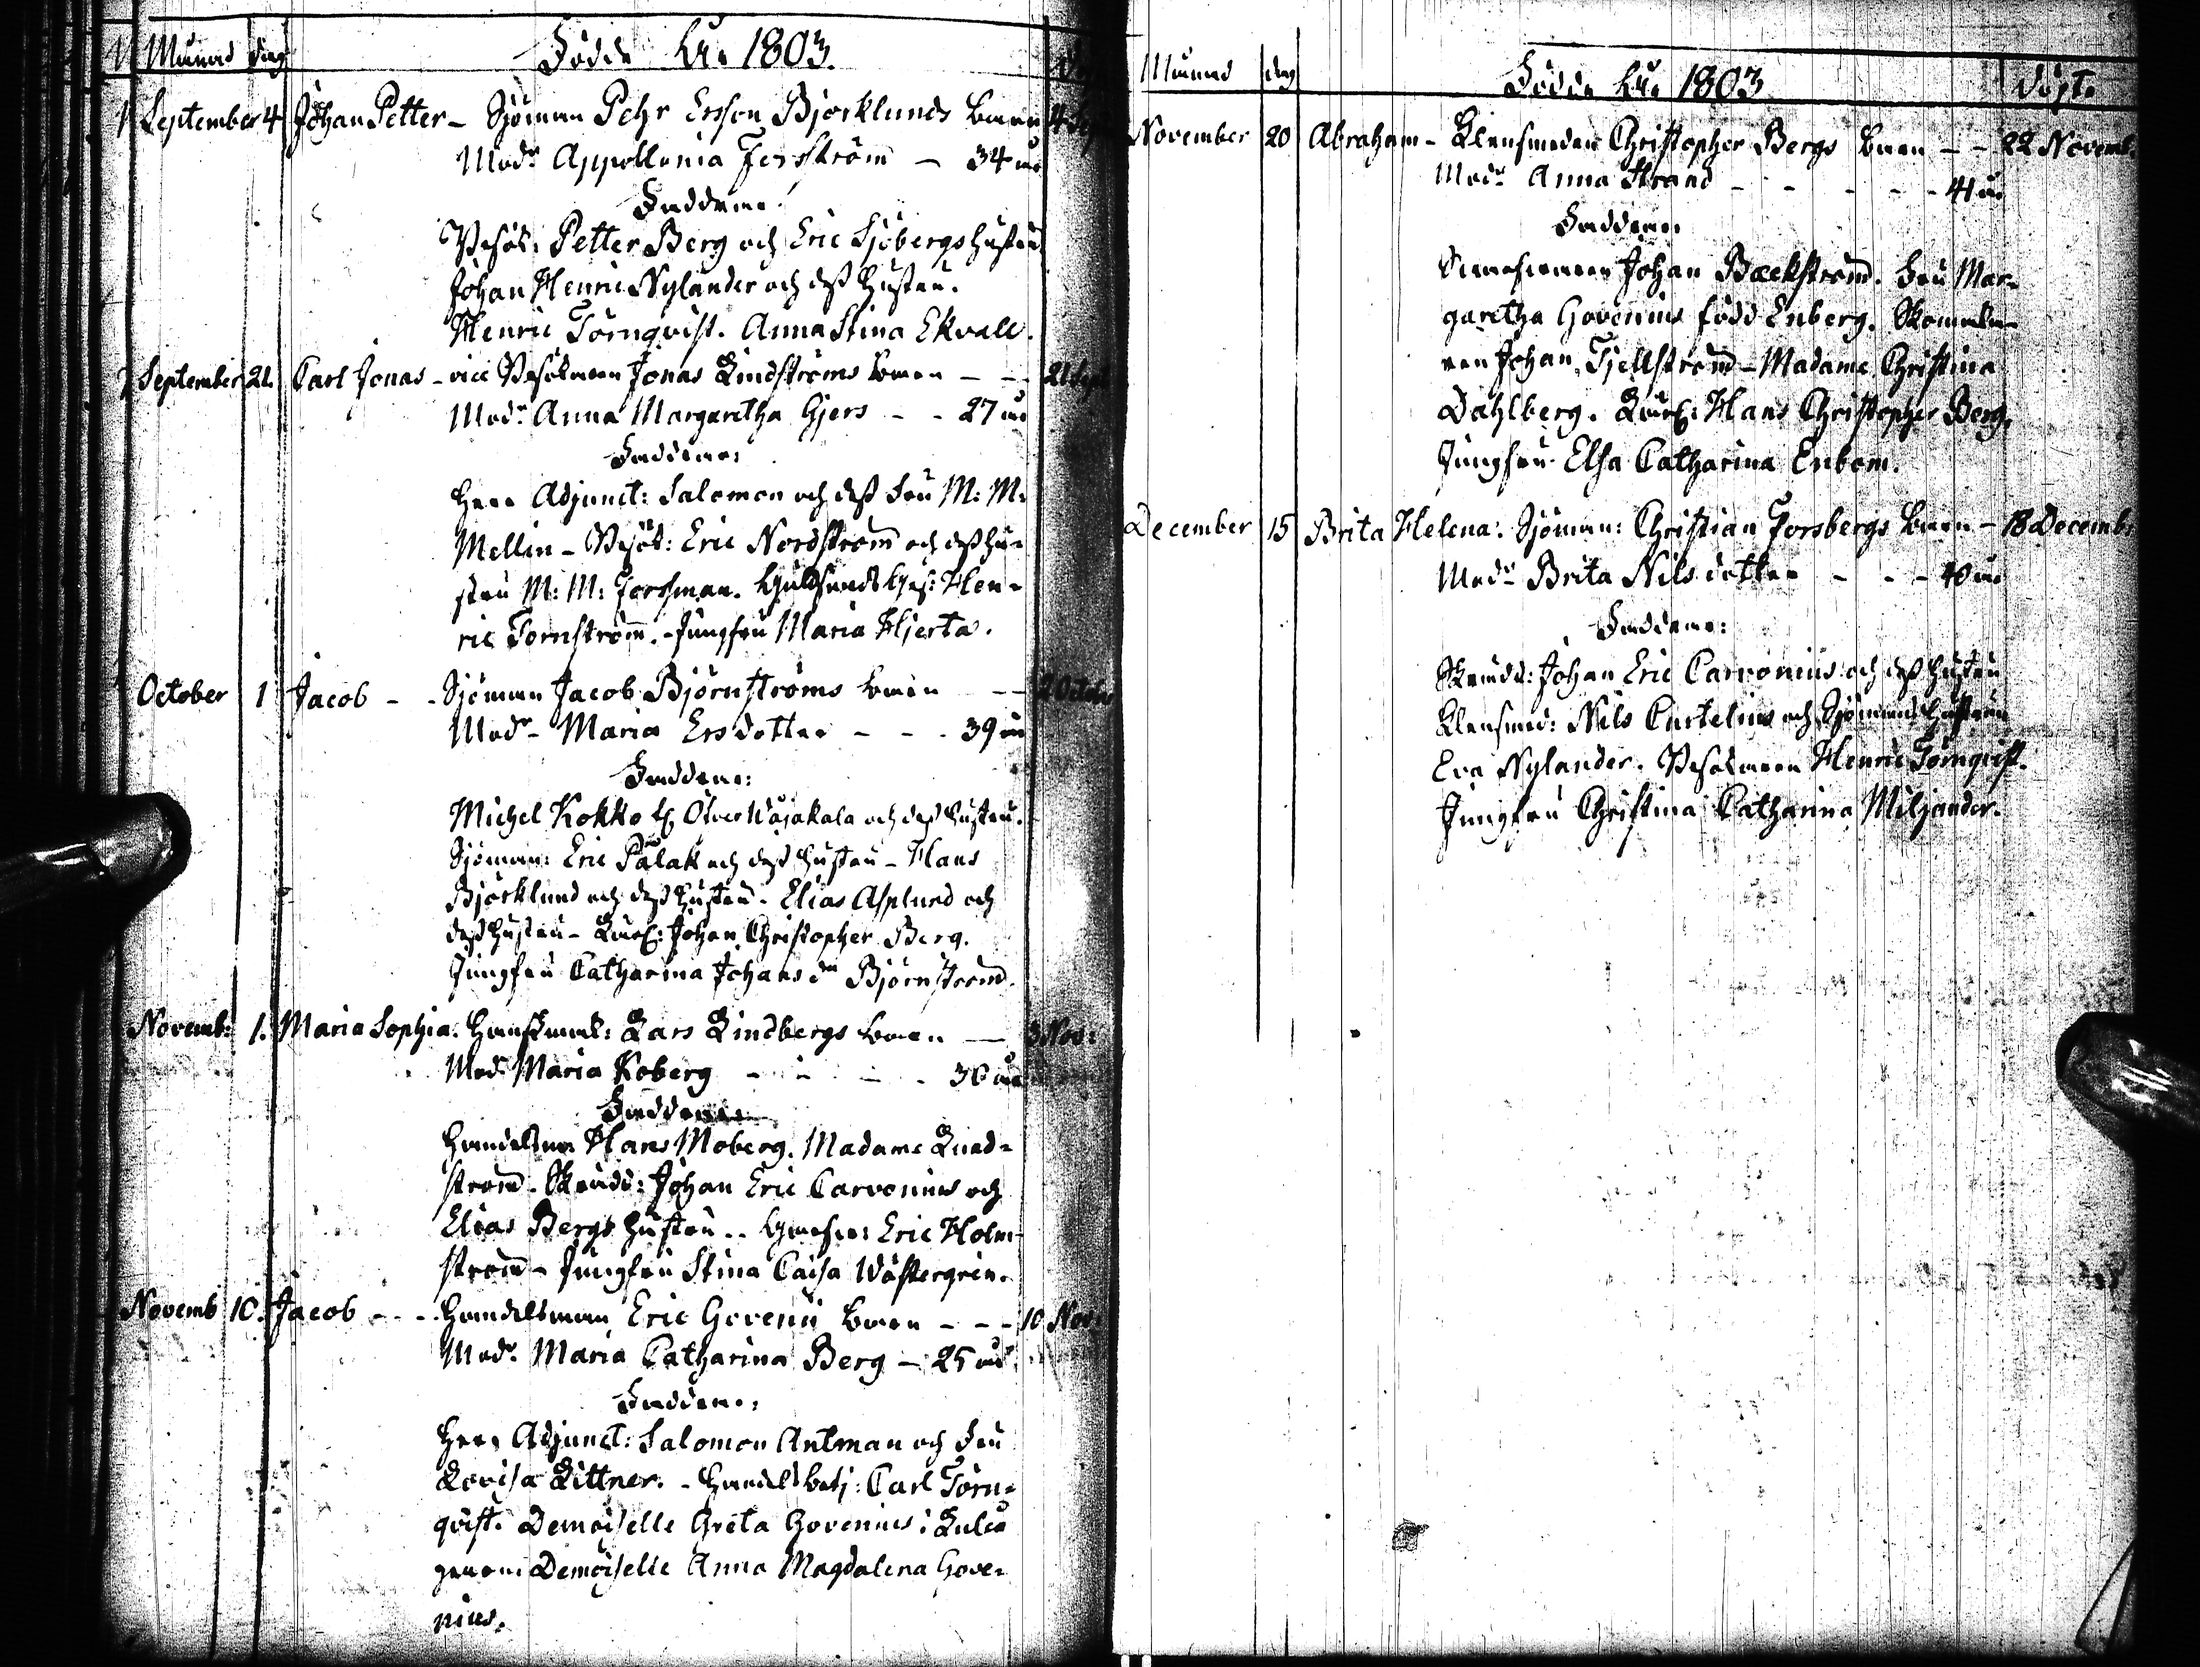 Månad dag Födde År 1803.
September 4 Johan Petter - Sjöman Pehr Ersson Björklunds barn 4 Sep
Modr Appollonia Forsström - 34 år
Faddrar:
Besök: Petter Berg och Eric Sjöbergs hustru
Johan Henric Nylander och dess hustru.
Henric Törnqvist. Anna Stina Ekvall.
September 21. Carl Jonas - vice Besökaren Jonas Lindströms barn - - 21 Sept
Modr Anna Margaretha Gjers - - 27 år
Faddrar:
Herr Adjunct: Salomon och dess Fru M: M:
Mellin - Besök: Eric Nordström och dess hu-
stru M: M: Forssman. Gullsmeds Ges: Hen-
ric Tornström. - Jungfru Maria Hjerta.
October 1 Jacob - - Sjöman Jacob Björnströms barn - - 2 October
Modr - Maria Ersdotter - - - 39 år
Faddrar:
Michel Kokko och dess hustru.
Sjöman: Eric Palak och dess hustru - Hans
Björklund och dess hustru. Elias Asplund och
dess hustru - Johan Christopher Berg.
Jungfru Catharina Johans dr Björnström.
Novemb: 1. Maria Sophia. Lars Lindbergs barn - 3 Nov:
Mod: Maria Koberg - - - - 36 år
Faddrar
Handelsman Hans Moberg. Madame Lund-
ström. Skrädd: Johan Eric Carvonius och
Elias Bergs hustru - - Eric Holm-
ström - Jungfru Stina Caisa Wästergren.
Novemb 10. Jacob - - - Handelsman Eric Govenii barn - - - 10 Nov:
Modr Maria Catharina Berg - 25 år.
Faddrar:
Herr Adjunct: Salomon Antman och Fru
Lovisa Littner. - Handelsbetj: Carl Törn-
qvist. Demoiselle Greta Govenius i Luleå
genom Demoiselle Anna Magdalena Gove-
nius.
Månad dag Födde År 1803 Döpt.
November 20 Abraham - Klensmeden Christopher Bergs barn - - 22 Novemb:
Modr Anna Strand - - - - - 41 år
Faddrar:
Johan Backström. Fru Mar-
garetha Govenius född Enberg. Skomaka-
ren Johan Fjellström - Madame Christina
Dahlberg. Hans Christopher Berg,
Jungfru Elsa Catharina Enbom.
December 15 Brita Helena. Sjöman: Christian Forsbergs barn - 18 Decemb:
Modr Brita Nils dotter - - - 40 år
Faddrar:
Skrädd: Johan Eric Carvonius och dess hustru
Klensmed: Nils Curtelius och Sjömans hustrun
Eva Nylander. Besökaren Henric Törnqvist.
Jungfru Christina Catharina Miljander.